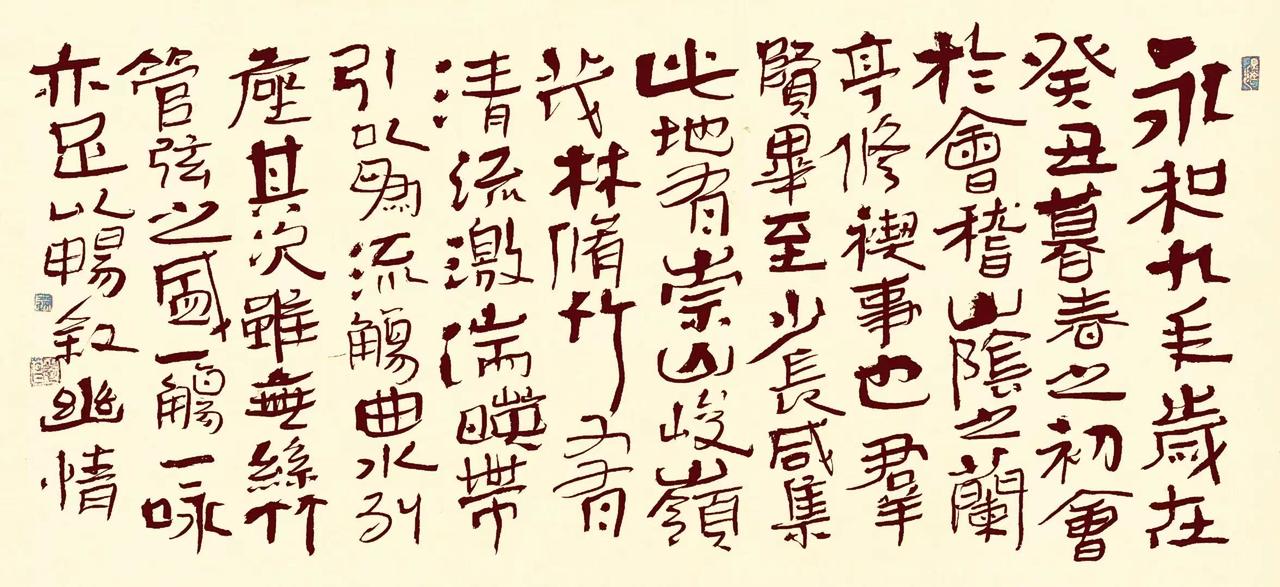 永和九年歲在
癸丑暮春之初會
於會稽山陰之蘭
亭修禊事也羣
賢畢至少長咸集
此地有崇山峻嶺
茂林脩竹又有
清流激湍暎帶
引以為流觴曲水列
座其次雖無絲竹
管弦之盛一觴一咏
亦足以暢敘幽情